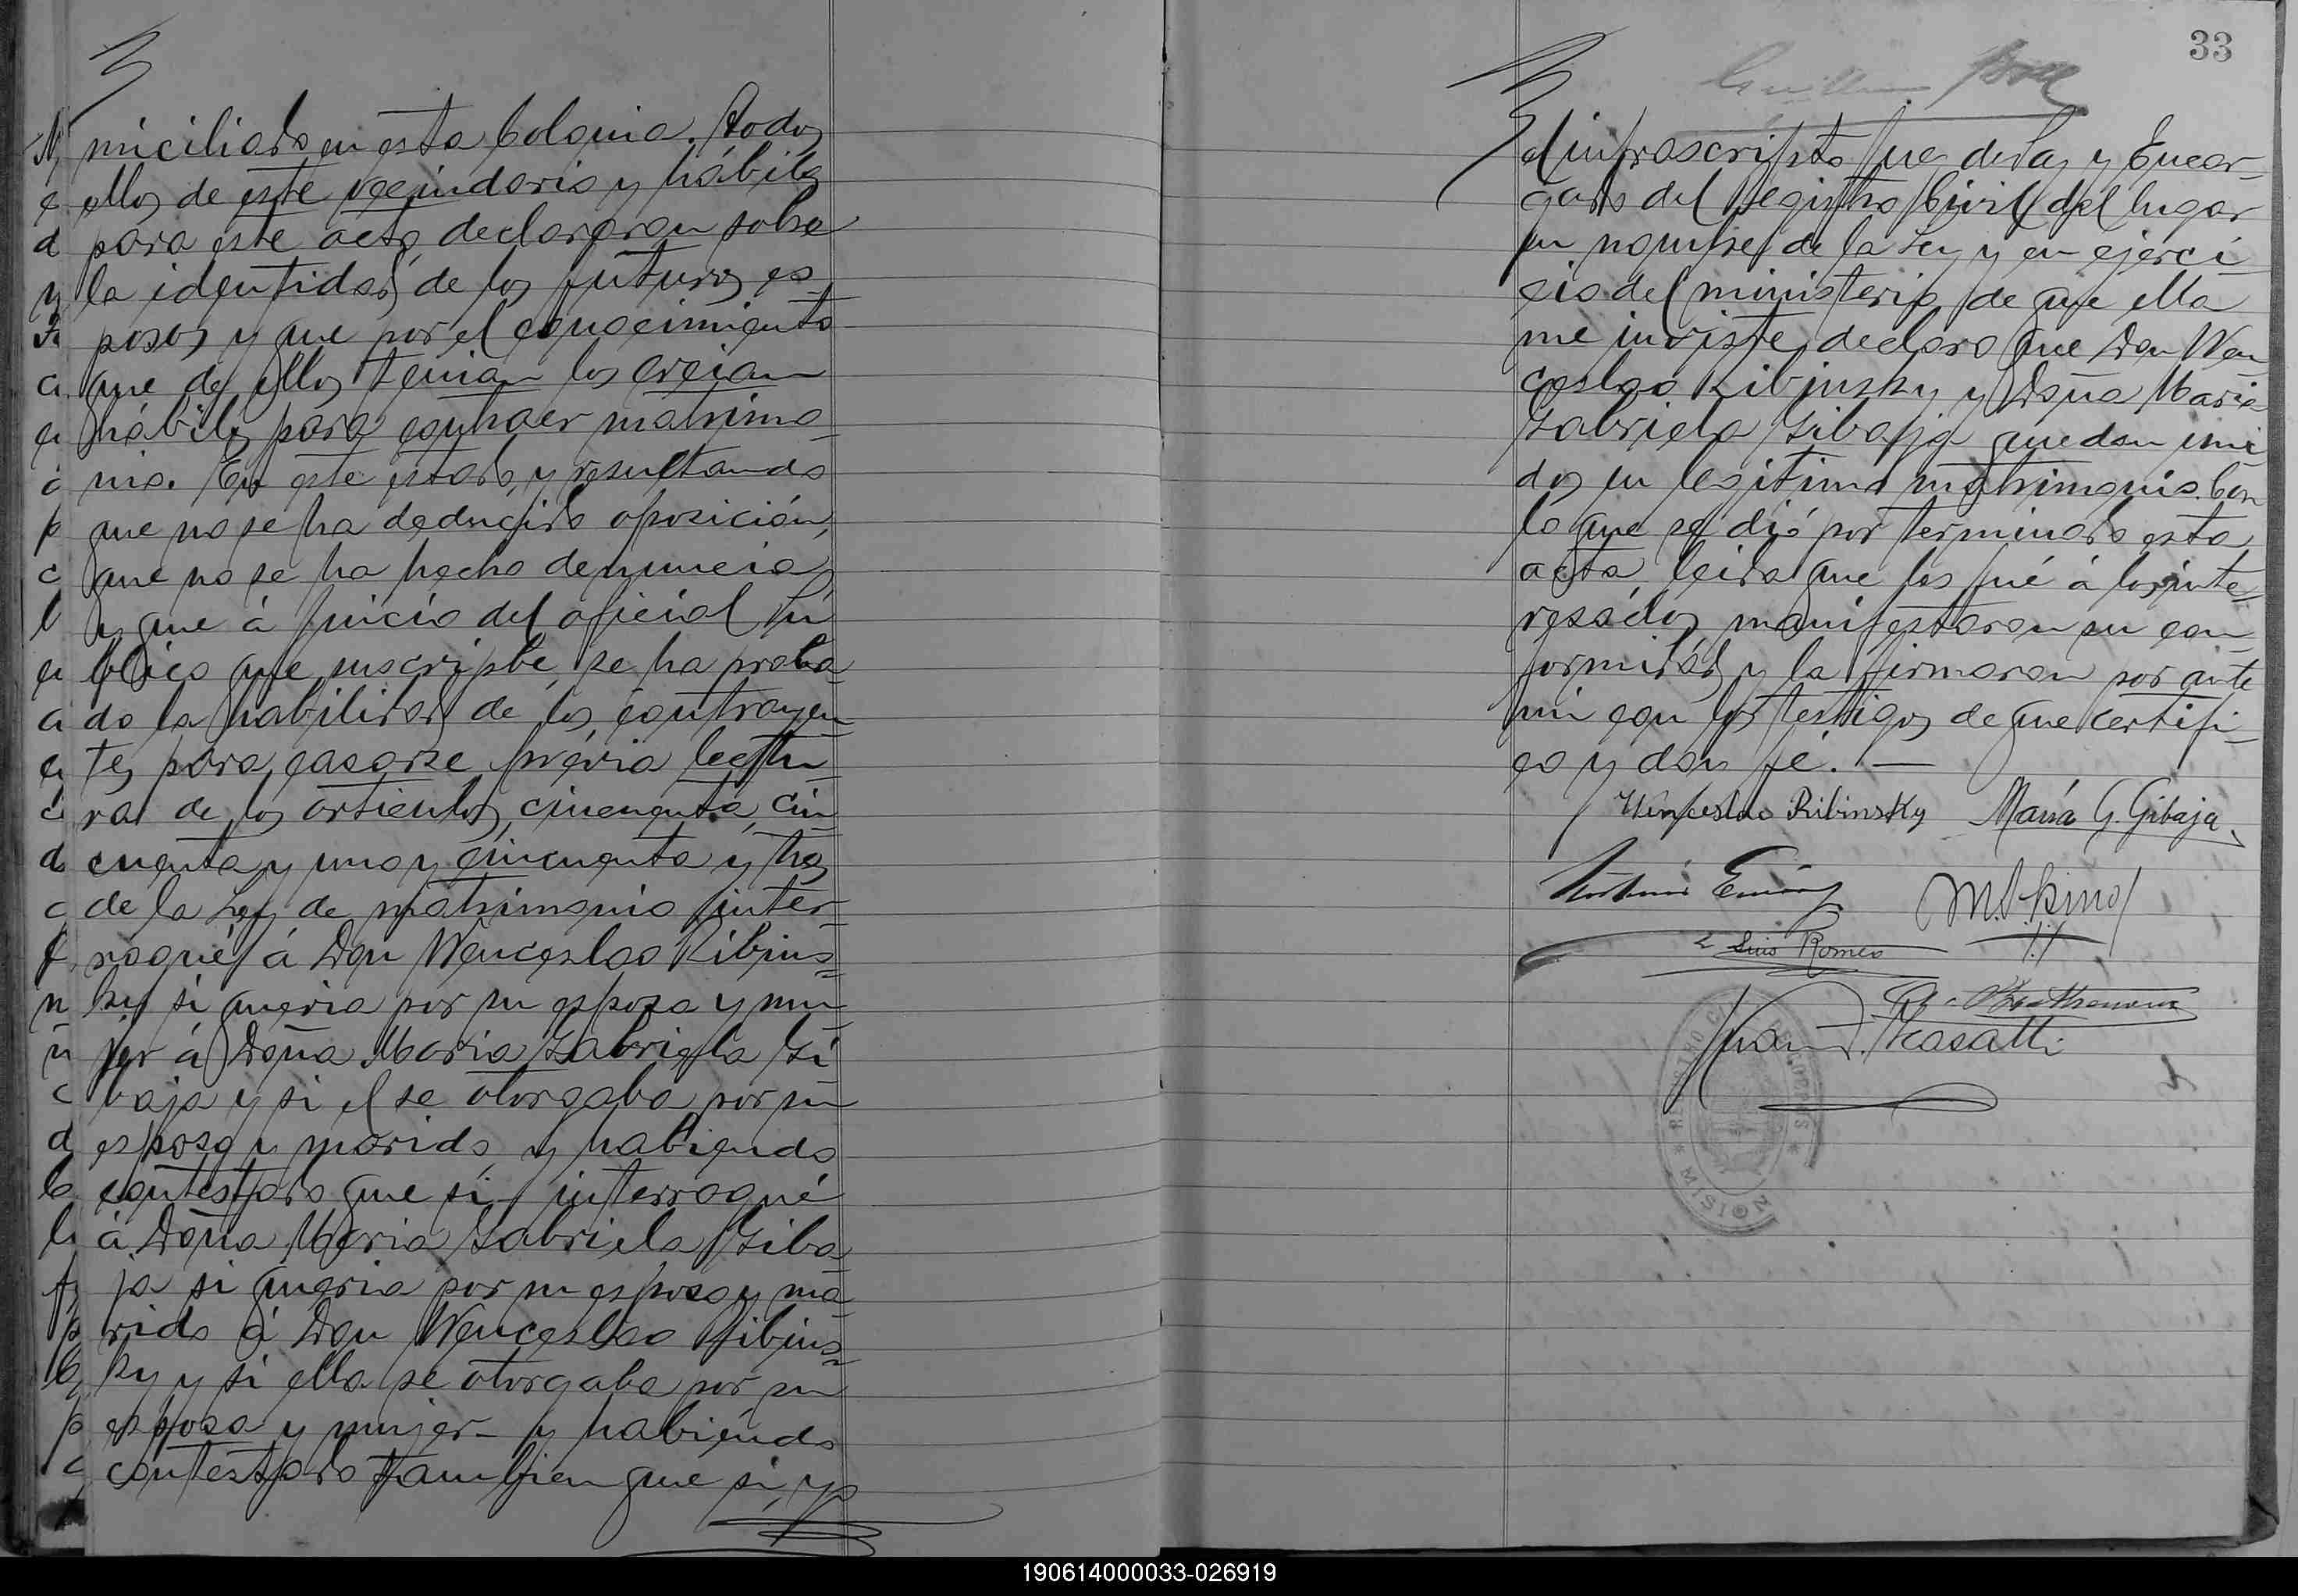 miciliado en esta Colonia. Todos
ellos de este vecindario y hábiles
para este acto, declararon sobre
la identidad de los futuros es-
posos y que por el conocimiento
que de ellos tenian los creian
hábiles para contraer matrimo-
nio. En este estado, y resultando
que no se ha deducido oposición,
que no se ha hecho denuncia,
y que á juicio del oficial Pú-
blico que suscripbe, se ha proba-
do la habilidad de los contrayen-
tes para casarse, prévia lectu-
ra de los articulos cincuenta, cin-
cuenta y uno y cincuenta y tres
de la Ley de matrimonio inter-
rogué á Don Wenceslao Ribins-
ky si queria por su esposa y mu-
jer á Doña Maria Gabriela Gi-
baja y si el se otorgaba por su
esposo y marido, y habiendo
contestado que si, interrogué
á Doña Maria Gabriela Giba-
ja si queria por su esposo y ma-
rido á Don Wenceslao Ribins-
ky y si ella se otorgaba por su
esposa y mujer - y habiendo
contestado tambien que si, yo
33
el infrascripto Juez de Paz y Encar-
gado del Registro Civil del lugar
en nombre de la Ley y en ejerci-
cio del ministerio de que ella
me inviste, declaro que Don Wen-
ceslao Ribinsky y Doña Maria
Gabriela Gibaja quedan uni-
dos en legitimo matrimonio. Con
lo que se dió por terminado esta
acta, leida que les fué á los inte-
resados, manifestaron su con-
formidad y la firmaron por ante
mi con los testigos de que certifi-
co y doy fé. —
Wenceslao Ribinsky María G. Gibaja
Luis Romeo
Juan Casatti
MISION
190614000033-026919